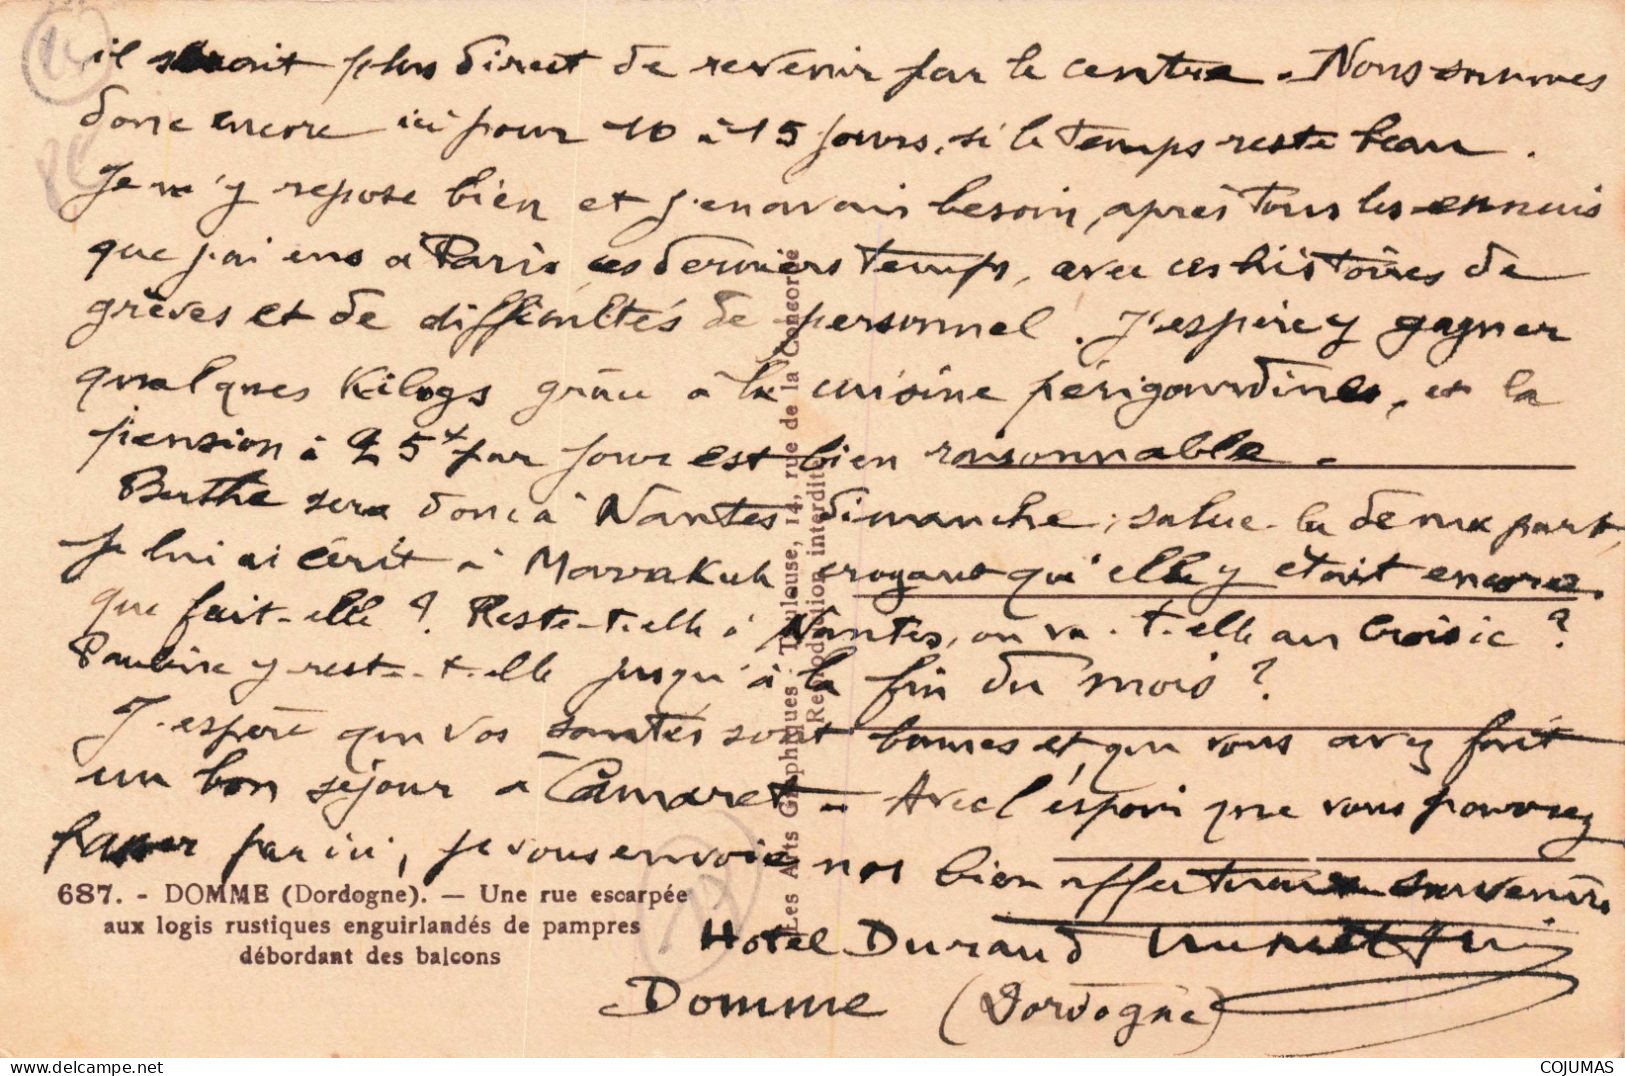 il serait plus direct de revenir par le centre. Nous sommes
donc encore ici pour 10 à 15 jours, si le temps reste beau.
Je m'y repose bien et j'en avais besoin, après tous les ennuis
que j'ai eus à Paris ces derniers temps, avec ces histoires de
grèves et de difficultés de personnel. J'espère y gagner
quelques Kilogs grâce à la cuisine périgourdine, et la
pension à 25f par jour est bien raisonnable.
Berthe sera donc à Nantes dimanche; salue-la de ma part,
je lui ai écrit à croyant qu'elle y était encore.
que fait-elle ? Reste-t-elle à Nantes, ou va-t-elle au Croisic ?
Pauline y reste-t-elle jusqu'à la fin du mois ?
J'espère que vos santés sont bonnes et que vous avez fait
un bon séjour à Camaret - Avec l'espoir que vous pourrez
passer par ici, je vous envoie nos bien affectueux souvenirs
Hotel Durand
Domme (Dordogne)
687. - DOMME (Dordogne). — Une rue escarpée
aux logis rustiques enguirlandés de pampres
débordant des balcons
Les Arts Graphiques. Toulouse, 14, rue de la Concorde
Reproduction interdite
COJUMAS